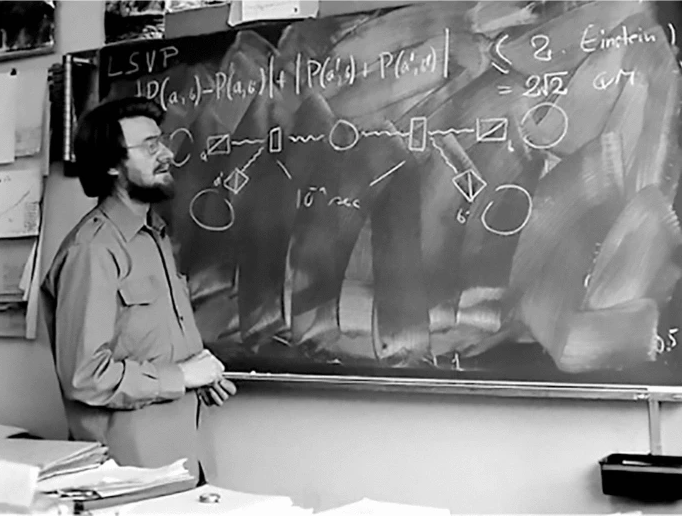 LSVP
|P(a,b)-P(a,b')|+|P(a',b)+P(a',b')| ≤ 2. Einstein
= 2√2 QM
a
b
a'
b'
10⁻⁹ sec